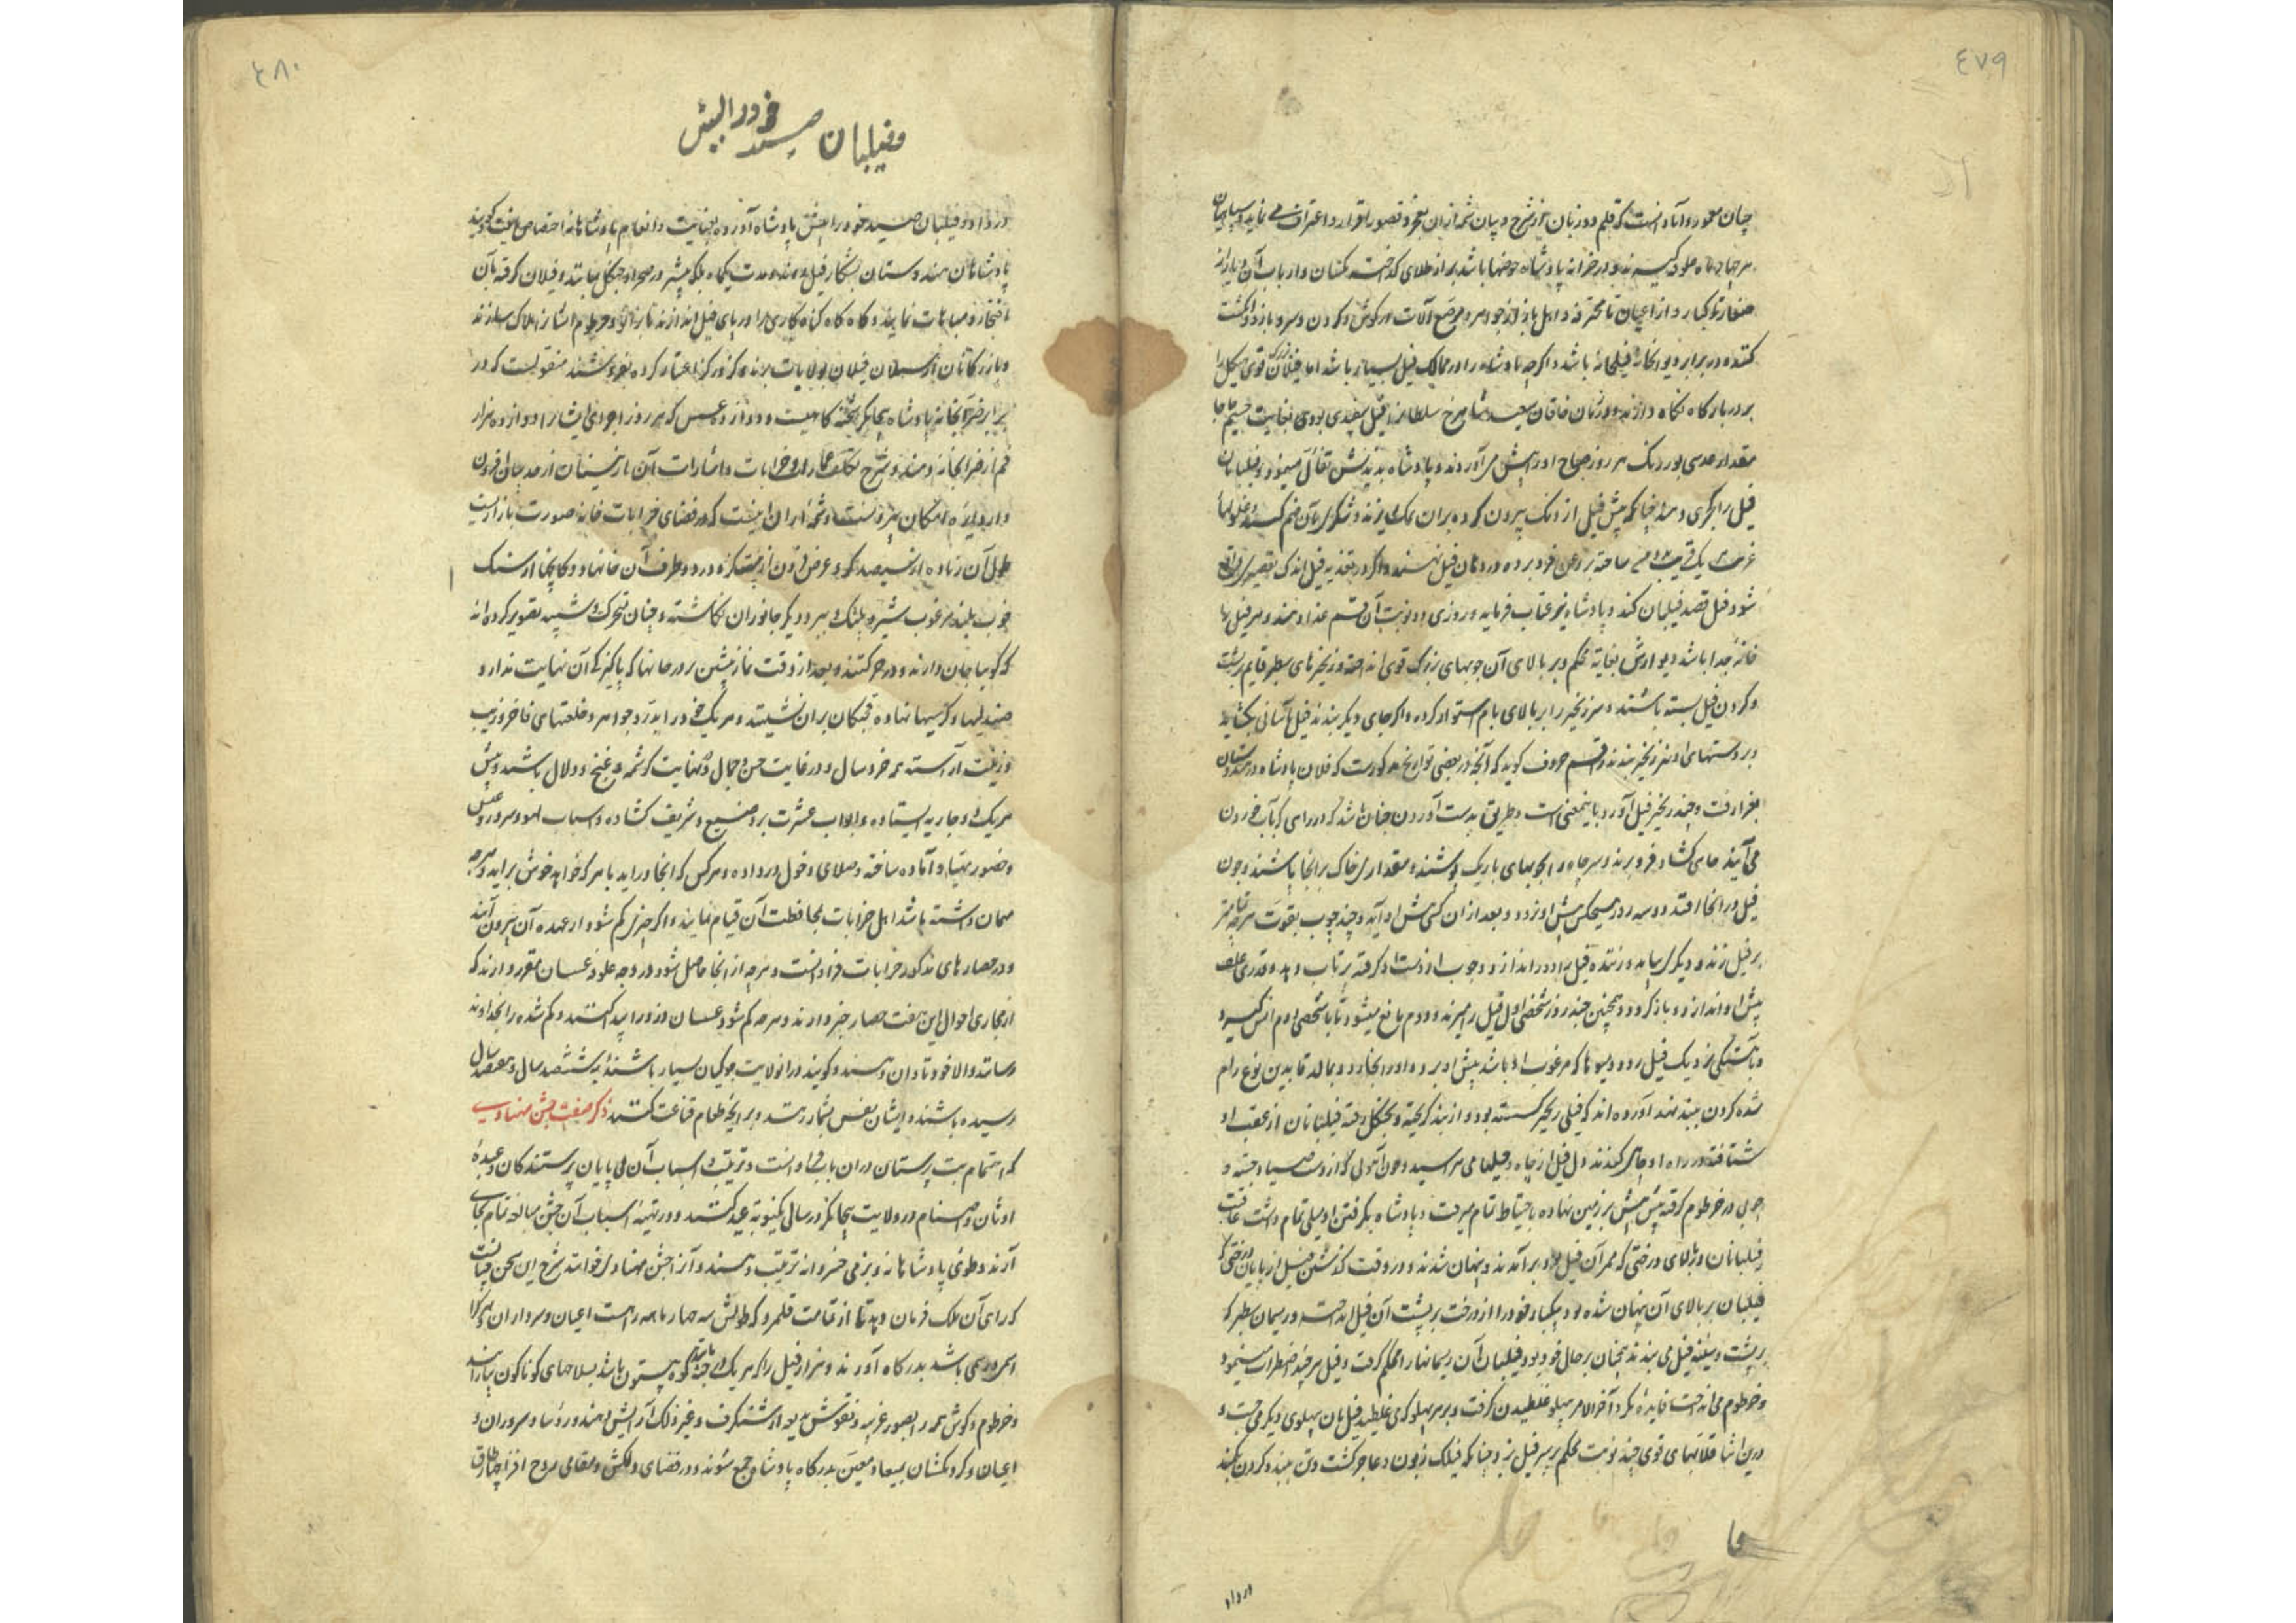 ٤٧٩
چنان معمور و آبادانست که قلم دو زبان از شرح و بیان شمه ازان بعجز و قصور اقرار و اعتراف می نماید و سپاهیان
هر چهار ماه علوفه گیرند و در خزانه پادشاه حوضها باشد پر از طلای گداخته یکسان و ارباب آن دیار از
صغار تا کبار و از اعیان تا محترفه و اهل بازار جواهر و مرصع آلات در گوش و گردن و سر و بازو و انگشت
کنند و در برابر دیوانخانه فیلخانه باشد و اگرچه پادشاه را در ممالک فیل بسیار باشد اما فیلان بزرگ قوی هیکل را
بر دربارگاه نگاه دارند و در زمان خاقان سعید شاهرخ سلطان فیل سفیدی بودی بغایت جسیم جا جا
مقدار عدسی بور رنگ هر روز صباح او را پیش می آوردند و پادشاه بدیدنش تفأل مینمود و فیلبانان
فیل را کجری دهند چنانکه پیش فیل از دیگ بیرون کرده بران نمک ریزند و شکر بآن ضم کنند و غلولها
هر یک قریب دو من ساخته بروغن فرو برده در دهان فیل نهند و اگر در تغذیه فیل اندک تقصیری واقع
شود فیل قصد فیلبان کند و پادشاه نیز عتاب فرماید و روزی دو نوبت آن قسم غذا دهند و هر فیل را
خانه جدا باشد دیوارش بغایة محکم و بر بالای آن چوبهای بزرگ قوی انداخته و زنجیرهای سطبر قایم بر پشت
و گردن فیل بسته باشند و سر زنجیر را بر بالای بام استوار کرده و اگر جای دیگر بندند فیل بآسانی بگشاید
و بر دستهای او نیز زنجیر بندند راقم حروف گوید که آنچه در بعضی تواریخ مذکورست که فلان پادشاه در هندوستان
بغزا رفت و چند زنجیر فیل آورد باینمعنی است و طریق بدست آوردن چنان باشد که در راهی که بآب خوردن
می آیند چاهی گشاد فرو برند و سر چاه را بچوبهای باریک پوشند و مقداری خاک بر انجا پاشند و چون
فیل در انجا افتد دو سه روز هیچکس پیش او نرود و بعد ازان کسی پیش او آید و چند چوب بقوت هرچه تمامتر
بر فیل زند و دیگری بیاید و زننده فیل را دور اندازد و چوب از دست او گرفته پرتاب دهد و قدری علف
پیش او اندازد و باز گردد و همچنین چند روز شخص اول فیل را میزند و دوم مانع میشود تا با شخص دوم انس گیرد
و بآهستگی نزدیک فیل رود و میوها که مرغوب او باشد پیش او برد و او را بخارد و بمالد تا بدین نوع رام
شده گردن ببند نهد آورده اند که فیلی زنجیر گسسته بود و از بند گریخته و بجنگل رفته فیلبانان از عقب او
شتافته در راه او چاهی کندند
چوبی در خرطوم گرفته پیش پیش بر زمین نهاده باحتیاط تمام میرفت و پادشاه بگرفتن او میلی تمام داشت عاقبت
فیلبانان بر بالای درختی که ممر آن فیل بود برآمدند و پنهان شدند و در وقت گذشتن فیل از پایان درختی که
فیلبان بر بالای آن پنهان شده بود بیکبار خود را از درخت بر پشت آن فیل انداخت و ریسمان سطبر که
بر پشت و سینه فیل می بندند همچنان بر حال خود بود فیلبان آن ریسمانها را محکم گرفت و فیل هر چند اضطراب مینمود
و خرطوم می انداخت فایده نکرد آخر الامر پهلو غلطیدن گرفت و بر هر پهلو که می غلطید فیلبان بپهلوی دیگر می جست و
درین اثنا قلابهای قوی چند نوبت محکم بر سر فیل زد چنانکه فیلک زبون و عاجز گشت و تن ببند و گردن بکمند
در داد
٤٨٠
و فیلبان صید خود را پیش
در داد و فیلبان صید خود را پیش پادشاه آورده بعنایت و انعام پادشاهانه اختصاص یافت گویند
پادشاهان هندوستان بشکار فیل روند و مدت یکماه بلکه بیشتر در صحرا و جنگل بباشند و فیلان گرفته بآن
افتخار و مباهات نمایند و گاه گاه گناه کاری را در پای فیل اندازند تا بزانو و خرطوم ایشان را هلاک سازند
و بازرگانان از سیلان فیلان بولایات برند و گز در گز اعتبار کرده بفروشند منقولست که در
برابر ضرابخانه پادشاه بیجانگر شحنه گاهیست و دوازده عسس که هر روز اجرای ایشان را دوازده هزار
فلم از ضرابخانه دهند و شرح تکلف عمارات و خرابات و اشارات آن نازنینان از حد بیان افزون
و از دایره امکان بیرونست و شمه ازان اینست که در فضای خرابات خانه صورت بازاریست
طول آن زیاده از سیصد گز و عرض فزون از بیست گز و در دو طرف آن خانها و دکانچها از سنگ
خوب بلند مرغوب شیر و پلنگ و ببر و دیگر جانوران نگاشته و چنان متحرک و شبیه تصویر کرده اند
که گوییا جان دارند و در حرکتند و بعد از وقت نماز پیشین بر در خانها که پاکیزگی آن نهایت ندارد
صندلیها و کرسیها نهاده قحبگان بران نشینند و هر یک خود را بدر و جواهر و خلعتهای فاخر و زیب
و زینت آراسته همه خرد سال و در غایت حسن و جمال و نهایت کرشمه و غنج و دلال باشند و پیش
هر یک دو جاریه ایستاده و ابواب عشرت بر وضیع و شریف گشاده و اسباب لهو و سرور و عیش
و حضور مهیا و آماده ساخته و صلای دخول در داده و هر کس که انجا در اید با هر که خواهد خوش براید و هرچه
مهمان داشته باشد اهل خرابات بمحافظت آن قیام نمایند و اگر چیزی گم شود از عهده آن بیرون آیند
و در حصارهای مذکور خرابات فراوانست و هرچه از انجا حاصل شود در وجه علوفه عسسان مقرر دارند که
از مجاری احوال این هفت حصار خبر دارند و هرچه گم شود عسسان دزد را پیدا کنند و گم شده را بخداوند
رسانند و الا خود تاوان دهند و گویند در انولایت جوکیان بسیار باشند که بششصد سال و هفتصد سال
رسیده باشند و ایشان نفس بشمار زنند و بر اینچه طعام قناعت کنند ذکر صفت جشن مهناوی
که اهتمام بت پرستان دران باب فراوانست و ترتیب و اسباب آن بی پایان پرستندگان و عبده
اوثان و اصنام در ولایت بیجانگر در سالی یکنوبة عید کنند و در تهیئه اسباب آن جشن مبالغه تمام بجای
آرند و طوی پادشاهانه و بزمی خسروانه ترتیب دهند و آنرا جشن مهناوی خوانند شرح این سخن آنست
که رای آن ملک فرمان دهد تا از تمامت قلمرو که طولش سه چهار ماهه راهست اعیان و سرداران و هر کرا
اسمی و رسمی باشد بدرگاه آورند و هزار فیل را که هر یک در جثه مانند کوه بیستون باشد بسلاحهای گوناگون بیارایند
و خرطوم و گوش همه را بصور غریبه و نقوش بدیعه از شنگرف و غیر ذلک آرایش دهند و رؤسا و سروران و
اعیان و گردنکشان بمیعاد معین بدرگاه پادشاه جمع شوند و در فضای دلکش و مقامی روح افزا چهار طاق